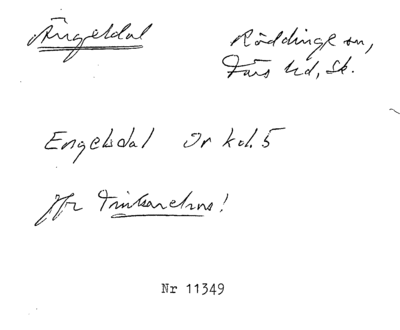 Ängeldal Röddinge sn,
Färs hd, Sk.
Engelsdal Or kol. 5
Jfr
Nr 11349